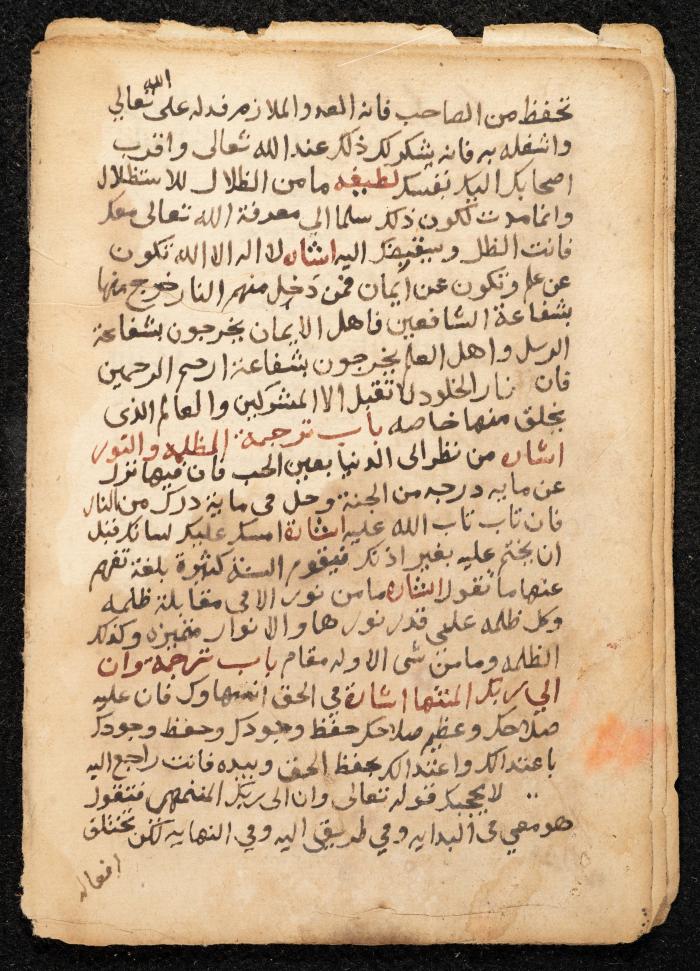 الله
تحفظ من الصاحب فانه العدو الملازم فدله على تعالى
واشغله به فانه يشكر لك ذلك عند الله تعالى واقرب
اصحابك اليك نفسك لطيفه ما من الظلال للاستظلال
وانما مدت لكون ذلك سلما الى معرفة الله تعالى معك
فانت الظل وسيقبضك اليه اشاره لا اله الا الله تكون
عن علم وتكون عن ايمان فمن دخل منهم النار خرج منها
بشفاعة الشافعين فاهل الايمان يخرجون بشفاعة
الرسل واهل العلم يخرجون بشفاعة ارحم الرحمين
فان نار الخلود لا تقبل الا المشركين والعالم الذى
يخلق منها خاصه باب ترجمة الظلمه والنور
اشاره من نظر الى الدنيا بعين الحب فان فيها نزل
عن مايه درجه من الجنة وحل فى ماية درك من النار
فان تاب تاب الله عليه اشارة امسك عليك لسانك قبل
ان يختم عليه بغير اذنك فيقوم السنة كثيرة بلغة تفهم
عنها ما تقول اشاره ما من نور الا فى مقابلة ظلمه
وكل ظلمه على قدر نورها والانوار متميزه وكذلك
الظلمه وما من شى الا وله مقام باب ترجمة وان
الى ربك المنتها اشارة فى الحق انتهاوك فان عليه
صلاحك وعظيم صلاحك حفظ وجودك وحفظ وجودك
باعتدالك واعتدالك بحفظ الحق وبيده فانت راجع اليه
لا يحجبك قوله تعالى وان الى ربك المنتهى فتقول
هو معى فى البدايه وفي طريقى اليه وفي النهايه لكن تختلف
افعاله